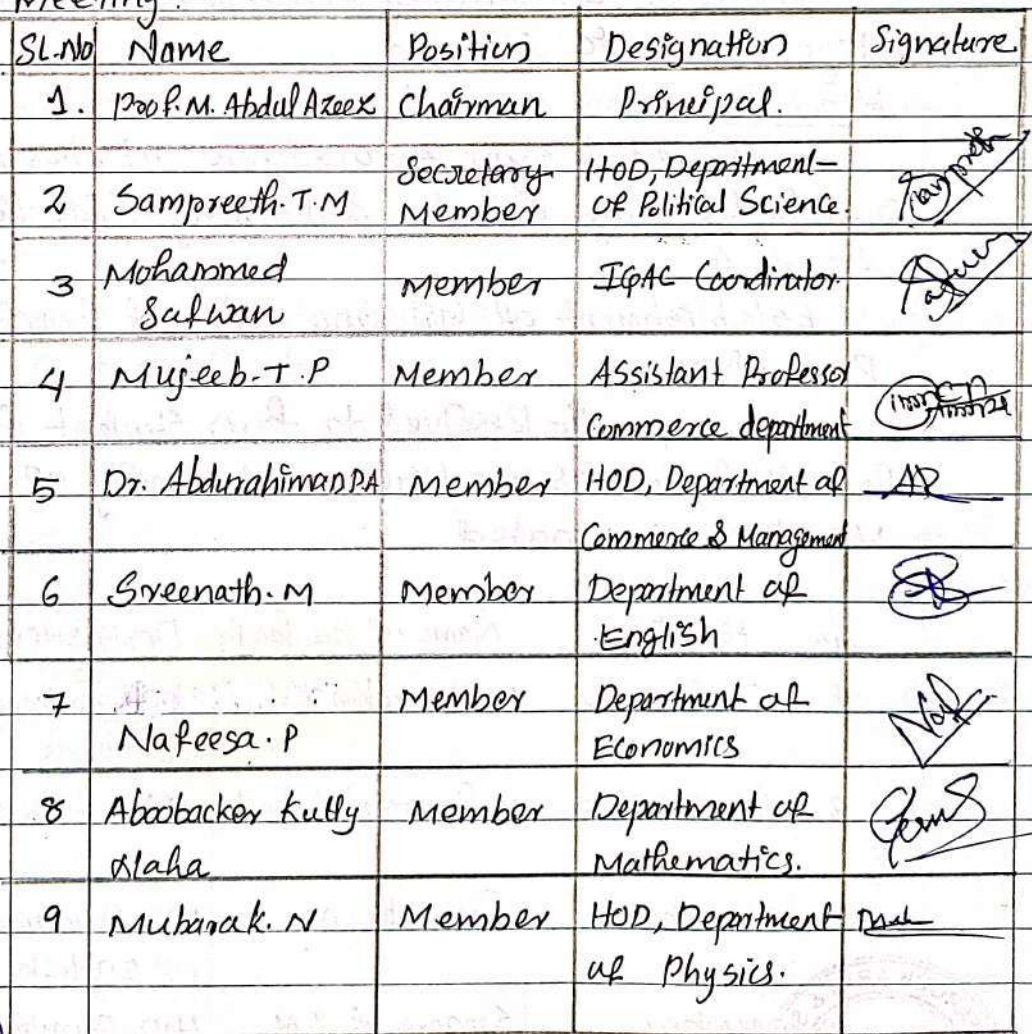 Meeting.
SL.No Name Position Designation Signature.
1. Prof. M. Abdul Azeez Chairman Principal.
2 Sampreeth. T. M Secretary Member HOD, Department of Political Science.
3 Mohammed Safwan Member IQAC Coordinator.
4 Mujeeb. T. P Member Assistant Professor Commerce department
5 Dr. Abdurahiman P.A Member HOD, Department of Commerce & Management AP
6 Sreenath. M Member Department of English
7 Nafeesa. P Member Department of Economics Naf
8 Aboobacker Kutty Member Department of Mathematics.
9 Mubarak. N Member HOD, Department of Physics.